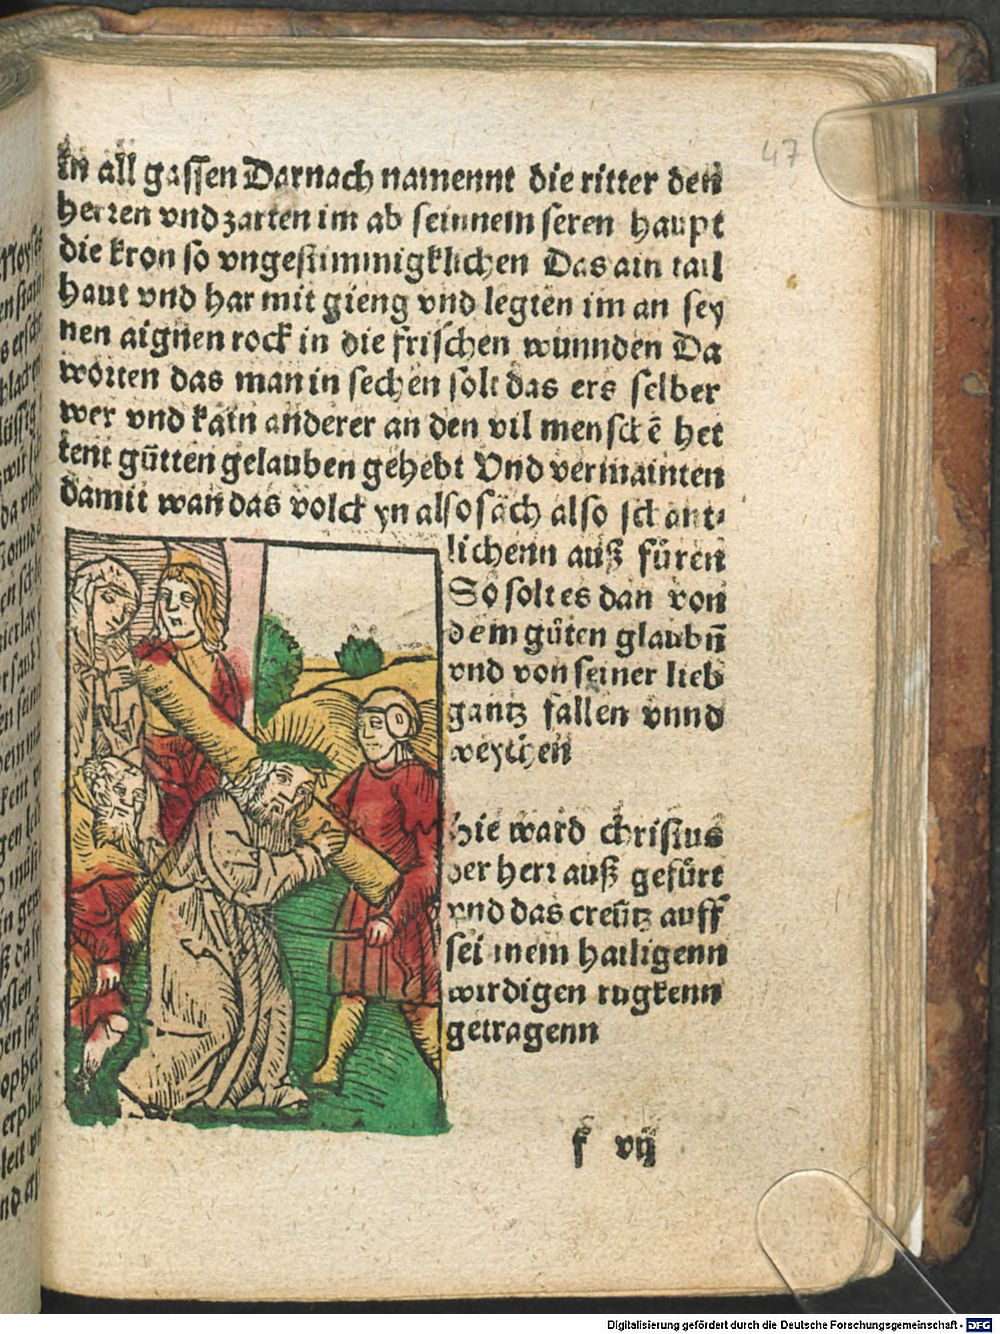 47
In all gassen Darnach namennt die ritter den
herren vnd zarten im ab seinnem seren haupt
die kron so vngestimmigklichen Das ain tail
haut vnd har mit gieng vnd legten im an sey
nen aignen rock in die frischen wunnden Da
worten das man in sechen solt das ers selber
wer vnd kain anderer an den vil mensckē het
tent gůtten gelauben gehebt Vnd vermainten
damit wan das volck yn also sach also schant⸗
lichenn auß fůren
So solt es dan von
dem gůten glaubn̄
vnd von seiner lieb
gantz fallen vnnd
weychen
Hie ward christus
der herr auß gefůrt
vnd das creütz auff
seinem hailigenn
wirdigen rugkenn
getragenn
f vij
Digitalisierung gefördert durch die Deutsche Forschungsgemeinschaft - DFG